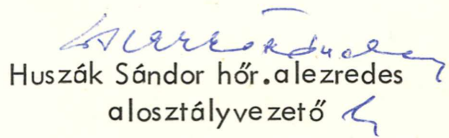 Huszák Sándor hőr.alezredes
alosztályvezető